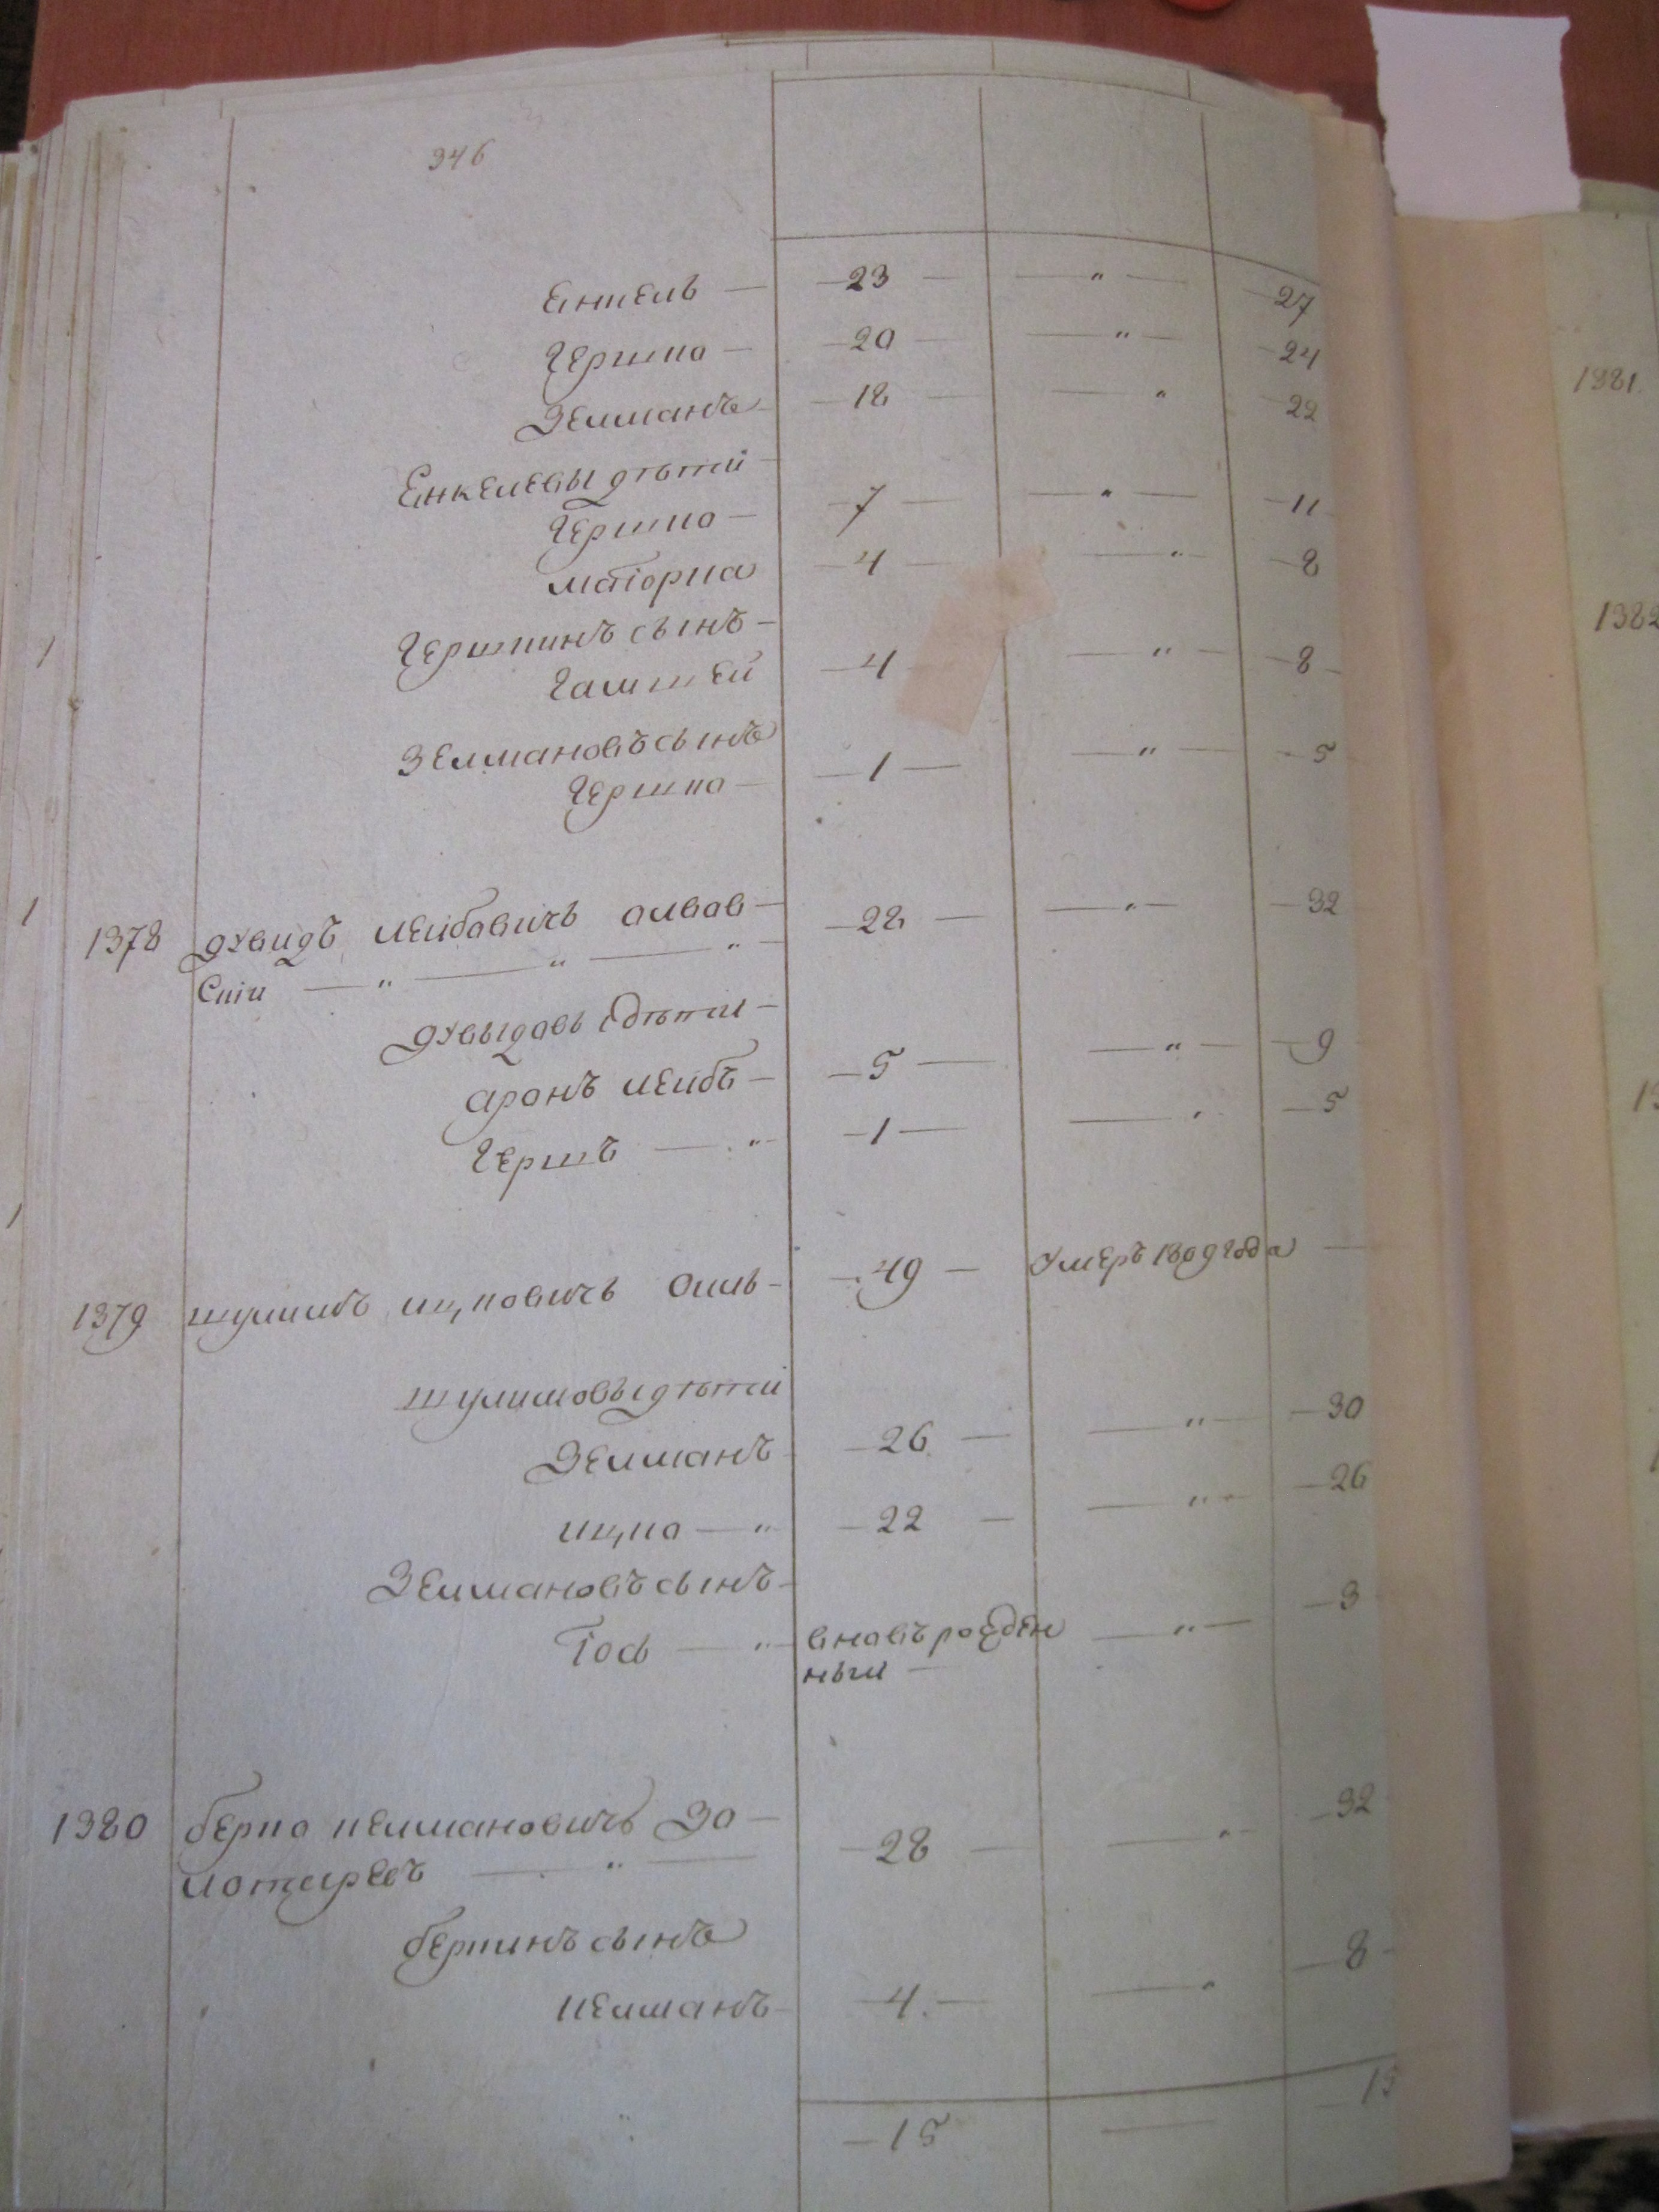 346
Енкель — 23 — " — 27
Гершко — 20 — " — 24
Зелманъ — 18 — " — 22
Енкелевы дѣти
Гершко — 7 — " — 11
маіорка — 4 — " — 8
Гершкинъ сынъ —
4 — " — 8
Зелмановъ сынъ
Гершко — 1 — " — 5
1378 дувидъ лейбовичъ — 28 — " — 32
скій — " — " — "
дувыдовы дѣти —
аронъ лейбъ — 5 — " — 9
Гершъ — " — 1 — " — 5
1379 шулимъ ицковичъ — 49 — умеръ 1809 года —
шулимовы дѣти
Зелманъ — 26 — " — 30
ицко — " — 22 — " — 26
Зелмановъ сынъ —
Іось — " — вновь рожден — " — 3
ный —
1380 берко келмановичъ Зо — 28 — " — 32
лотаревъ — " —
беркинъ сынъ
келманъ — 4 — " — 8
— 15 — 15
1381
1382